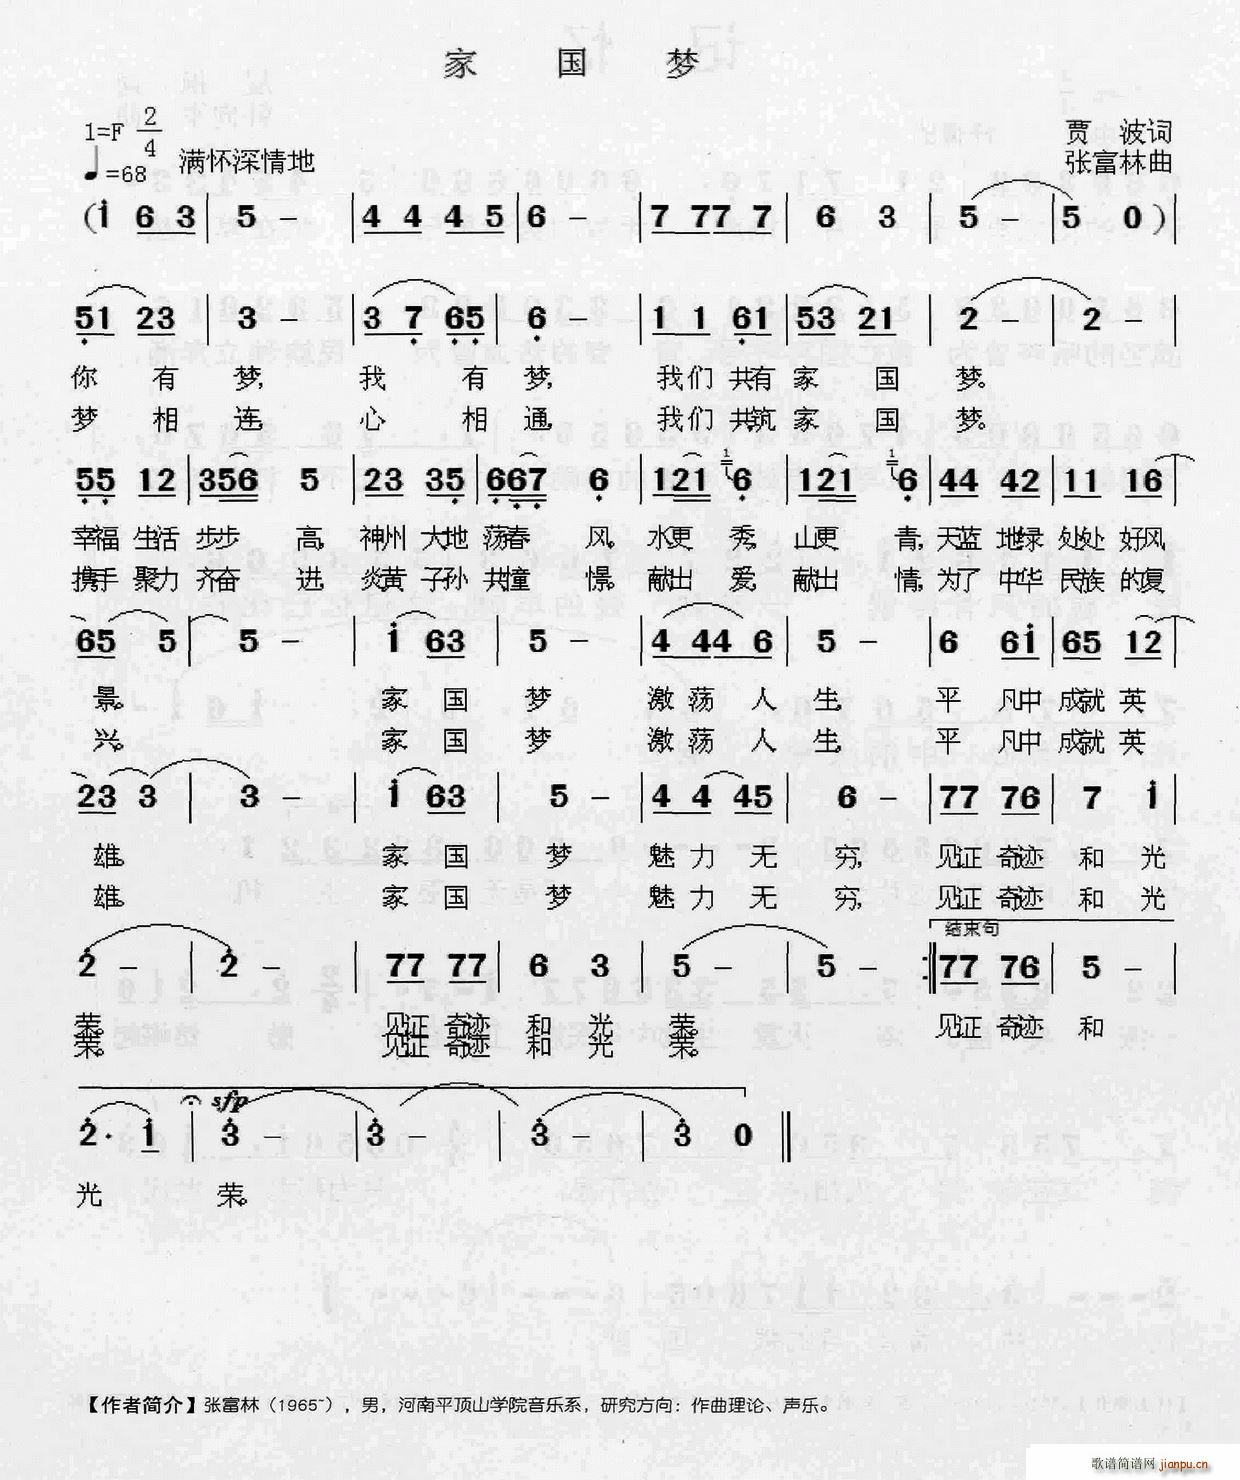 家 国 梦
1=F 2/4
♩=68 满怀深情地
贾 波词
张富林曲
(i 6 3 | 5 – | 4 4 4 5 | 6 – | 7 77 7 | 6 3 | 5 – | 5 0 ) |
51 23 | 3 – | 3 7 65 | 6 – | 1 1 61 | 53 21 | 2 – | 2 – |
你 有 梦, 我 有 梦, 我们 共有 家 国 梦。
梦 相 连, 心 相 通, 我们 共筑 家 国 梦。
55 12 | 356 5 | 23 35 | 667 6 | 121 1 6 | 121 1 6 | 44 42 | 11 16 |
幸福 生活 步步 高, 神州 大地 荡春 风, 水更 秀, 山更 青, 天蓝 地绿 处处 好风
携手 聚力 齐奋 进, 炎黄 子孙 共憧 憬。 献出 爱, 献出 情, 为了 中华 民族 的复
65 5 | 5 – | i 63 | 5 – | 4 44 6 | 5 – | 6 6i | 65 12 |
景。 家 国 梦 激 荡 人 生, 平 凡中 成就 英
兴。 家 国 梦 激 荡 人 生, 平 凡中 成就 英
23 3 | 3 – | i 63 | 5 – | 4 4 45 | 6 – | 77 76 | 7 i |
雄。 家 国 梦 魅 力 无 穷, 见证 奇迹 和 光
雄。 家 国 梦 魅 力 无 穷, 见证 奇迹 和 光
结束句
2 – | 2 – | 77 77 | 6 3 | 5 – | 5 – :‖ 77 76 | 5 – |
荣。 见证 奇迹 和 光 荣。 见证 奇迹 和
荣。 见证 奇迹 和 光 荣。
sfp
2· i | 3 – | 3 – | 3 – | 3 0 ‖
光 荣。
【作者简介】张富林（1965~），男，河南平顶山学院音乐系，研究方向：作曲理论、声乐。
歌谱简谱网 jianpu.cn